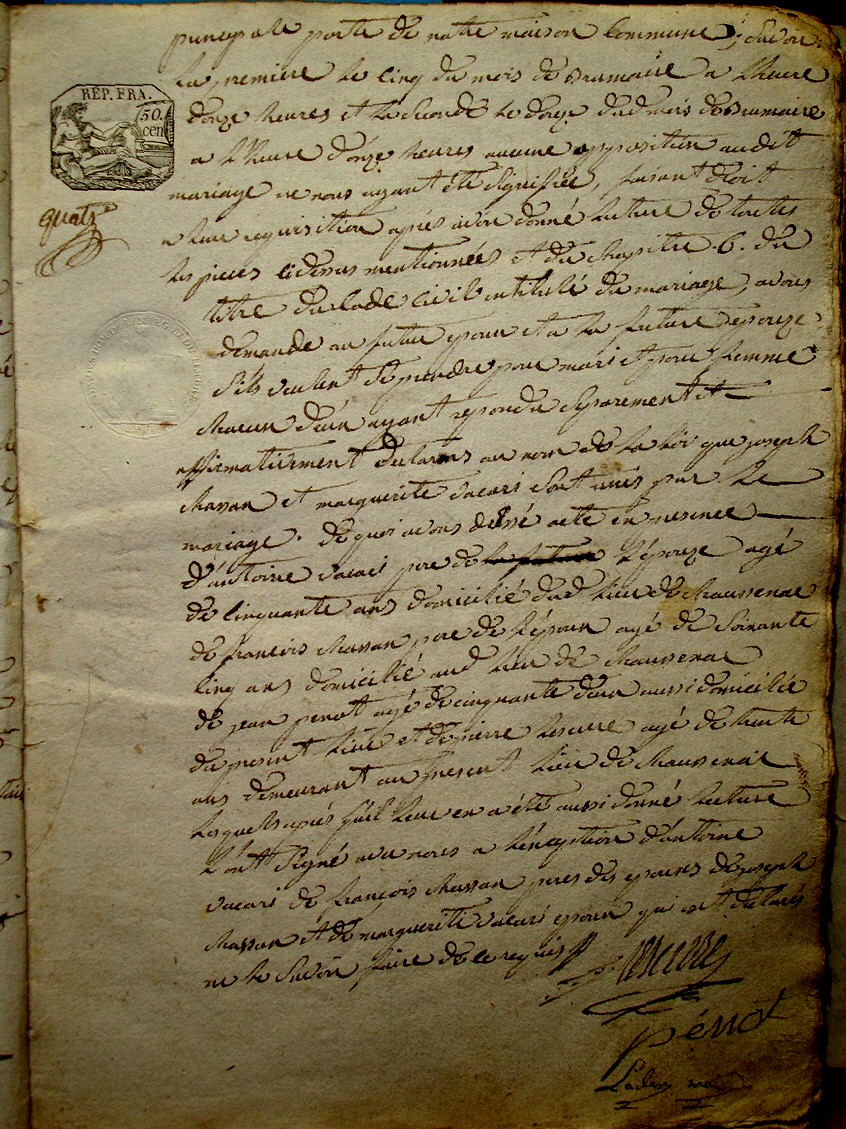 principale porte de notre maison Commune, savoir
la premiere le cinq du mois de Brumaire a l'heure
REP. FRA.
50.
cen.
d'onze heures et la seconde le douze dud. mois de Brumaire
a l'heure d'onze heures aucune opposition audit
mariage ne nous ayant été signifiée, faisant droit
quatr
a leur requisition apres avoir donné lecture de toutes
les pieces cidessus mentionnées et du Chapitre .6. du
titre du Code Civil intitulé du mariage, avons
demandé au futur epoux et a la future epouze
s'ils veulent se prendre pour mari et pour femme
chacun d'eux ayant repondu separement et
affirmativement declarons au nom de la loi que joseph
Massan et marguerite vacari sont unis par le
mariage. de quoi avons dressé acte en presence
d'antoine vacari pere de la future l'épouze agé
de cinquante ans domicilié dud. lieu de Maussenac
de francois Massan pere de l'époux agé de soixante
cinq ans domicilié aud. lieu de Maussenac
de jean penot agé de cinquante deux aussi domicilié
du present lieu et de pierre Lescure agé de trente
ans demeurant au present lieu de Maussenac
lesquels apres qu'il leur en a été aussi donné lecture
l'ont signé avec nous a l'exception d'antoine
vacari de françois Massan peres des epoux de joseph
Massan et de marguerite vacari epoux qui ont declarés
ne le savoir faire de ce requis
penot